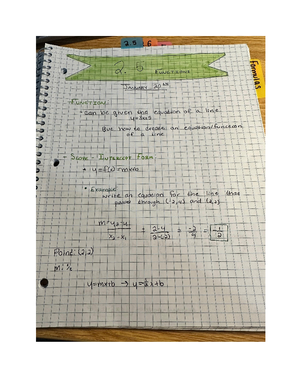 2.5 6
Formulas
2.5 FUNCTIONS
FUNCTION
can be given the equation of a line
But how to create an equation/function
of a line
SLOPE - INTERCEPT FORM
• y=f(x)=mx+b
• Example
write an equation for the line that
passes through (-2,4) and (2,2)
m= y₂-y₁
x₂-x₁
= 2-4
2-(-2)
= -2
4
= -1
2
Point: (2,2)
y=mx+b → y=